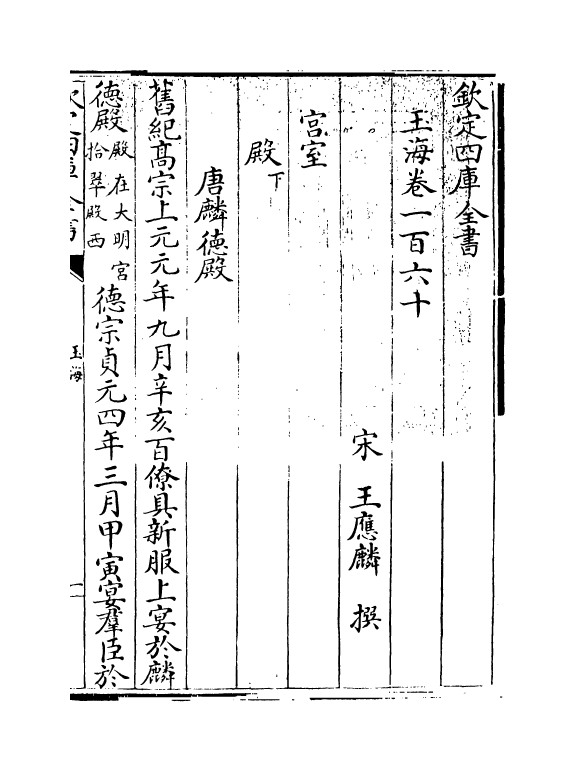 欽定四庫全書
玉海卷一百六十
宋 王應麟 撰
宮室
殿下
唐麟德殿
舊紀高宗上元元年九月辛亥百僚具新服上宴於麟
德殿殿在大明宮拾翠殿西德宗貞元四年三月甲寅宴羣臣於
玉海